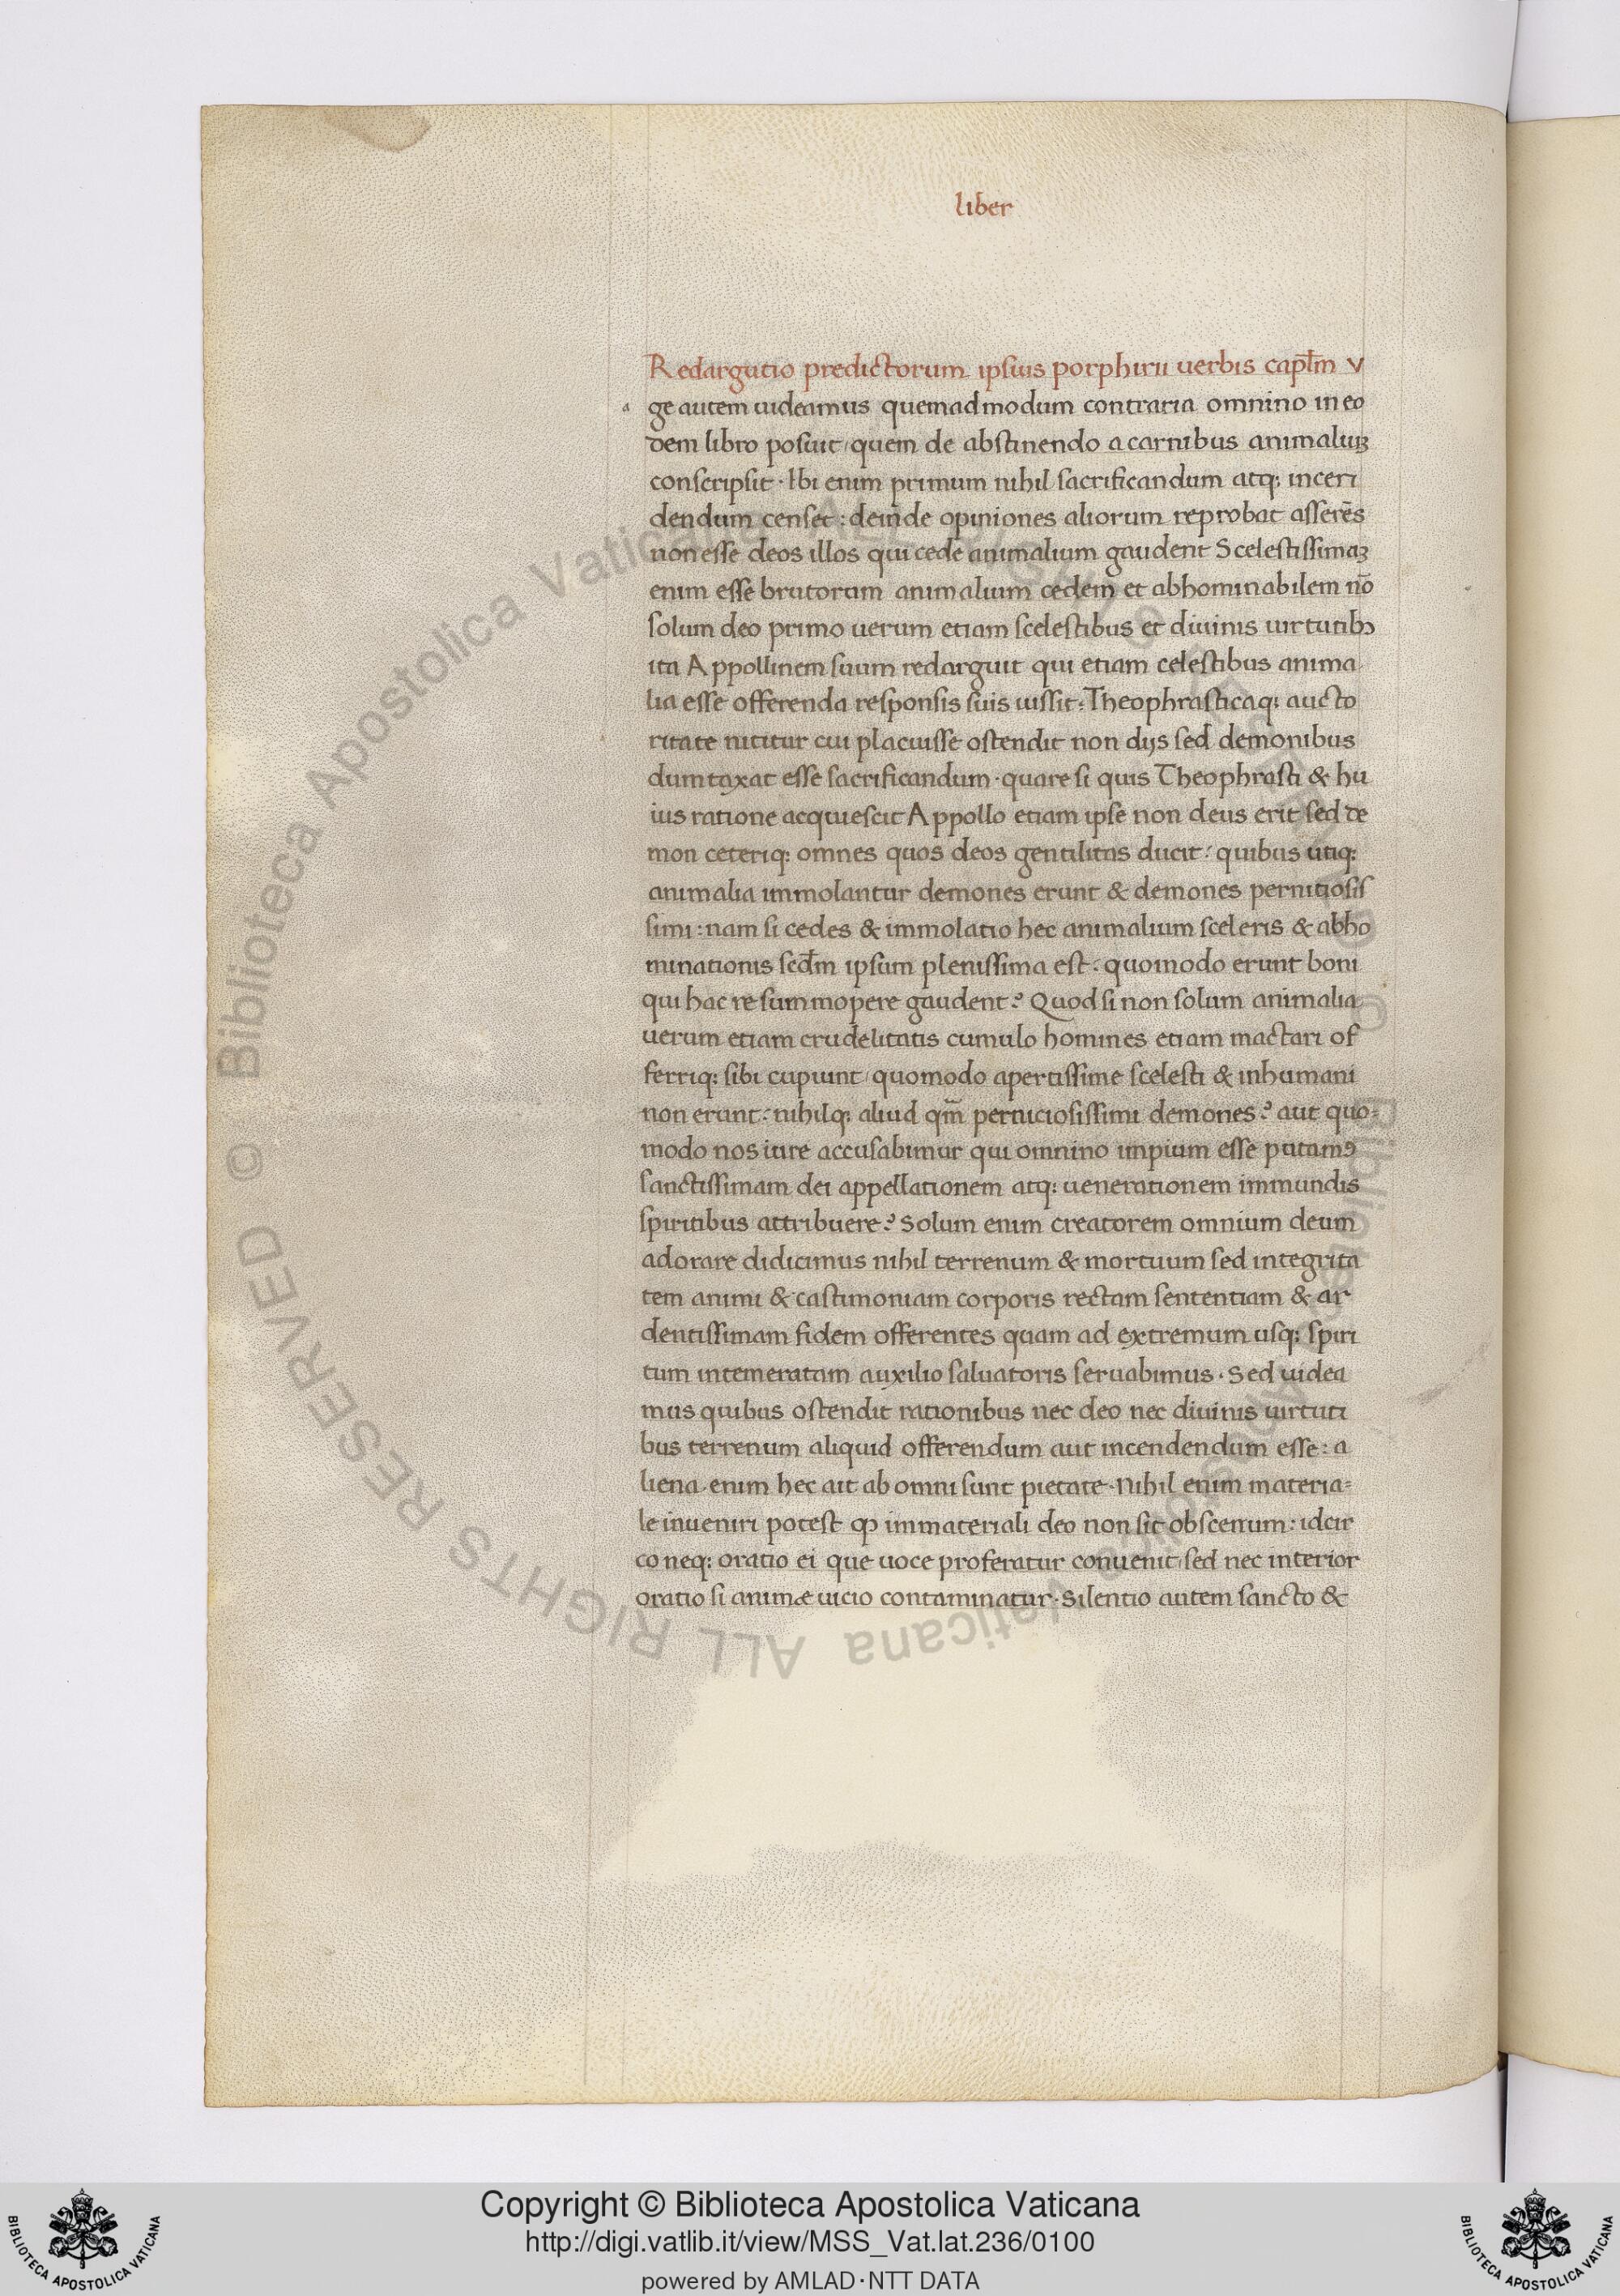 liber
Redargutio predictorum ipsius porphirii uerbis cap̅l̅m V
a ge autem uideamus quemadmodum contraria omnino in eo
dem libro posuit/quem de abstinendo a carnibus animaliuꝫ
conscripsit · Ibi enim primum nihil sacrificandum atq; inceri
dendum censet : deinde opiniones aliorum reprobat asserēs
non esse deos illos qui cede animalium gaudent Scelestissimaꝫ
enim esse brutorum animalium cedem et abhominabilem nō
solum deo primo uerum etiam scelestibus et diuinis uirtutibꝰ
ita Appollinem suum redarguit qui etiam celestibus anima
lia esse offerenda responsis suis iussit : Theophrasticaq; aucto
ritate nititur cui placuisse ostendit non dijs sed demonibus
dumtaxat esse sacrificandum · quare si quis Theophrasti & hu
ius ratione acquiescit Appollo etiam ipse non deus erit sed de
mon ceteriq; omnes quos deos gentilitas ducit : quibus utiq;
animalia immolantur demones erunt & demones pernitiosis
simi : nam si cedes & immolatio hec animalium sceleris & abho
minationis scd̅m ipsum plenissima est : quomodo erunt boni
qui hac re summopere gaudent ? Quod si non solum animalia
uerum etiam crudelitatis cumulo homines etiam mactari of
ferriq; sibi cupiunt/quomodo apertissime scelesti & inhumani
non erunt : nihilq; aliud qm̅ perniciosissimi demones ? aut quo-
modo nos iure accusabimur qui omnino impium esse putamꝰ
sanctissimam dei appellationem atq; uenerationem immundis
spiritibus attribuere ? Solum enim creatorem omnium deum
adorare didicimus nihil terrenum & mortuum sed integrita
tem animi & castimoniam corporis rectam sententiam & ar
dentissimam fidem offerentes quam ad extremum usq; spiri
tum intemeratam auxilio saluatoris seruabimus · Sed uidea
mus quibus ostendit rationibus nec deo nec diuinis uirtuti
bus terrenum aliquid offerendum aut incendendum esse : a
liena enim hec ait ab omni sunt pietate · Nihil enim materia-
le inueniri potest ꝙ immateriali deo non sit obscenum : idcir
co neq; oratio ei que uoce proferatur conuenit/sed nec interior
oratio si animæ uicio contaminatur · Silentio autem sancto &
© Biblioteca Apostolica Vaticana ALL RIGHTS RESERVED
© Biblioteca Apostolica Vaticana ALL RIGHTS RESERVED
Copyright © Biblioteca Apostolica Vaticana
http://digi.vatlib.it/view/MSS_Vat.lat.236/0100
powered by AMLAD·NTT DATA
BIBLIOTECA APOSTOLICA VATICANA
BIBLIOTECA APOSTOLICA VATICANA